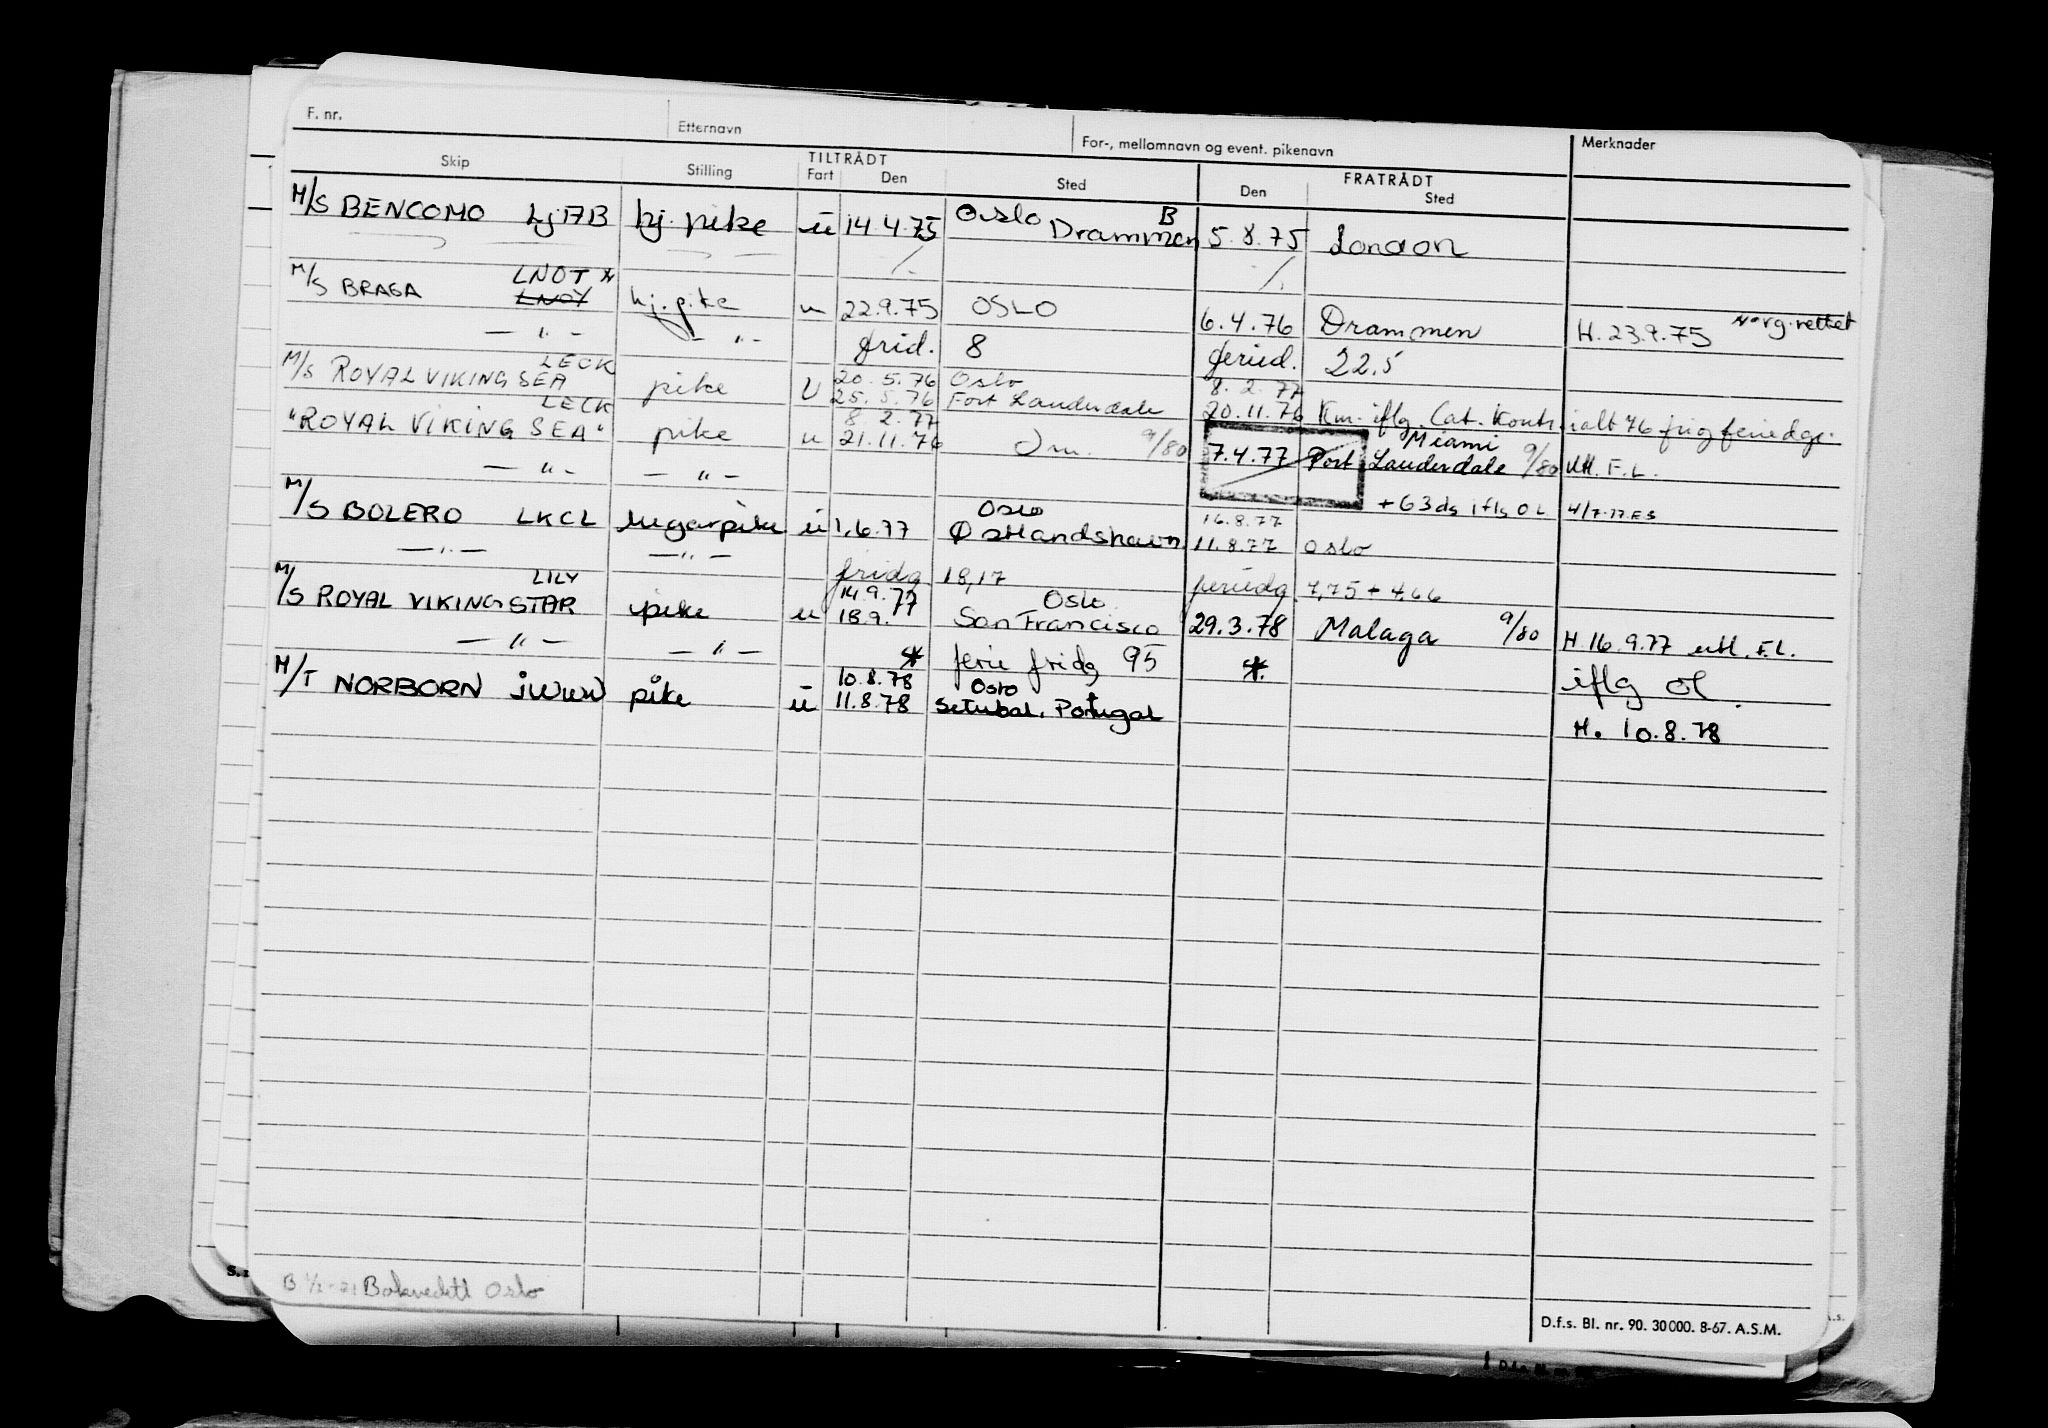 F. nr. Etternavn For-, mellomnavn og event. pikenavn Merknader
Skip Stilling TILTRÅDT Fart Den Sted FRATRÅDT Den Sted
M/S BENCOMO LJ17B hj. pike u 14.4.75 Oslo B Drammen 5.8.75 London
M/S BRAGA LNOT * LNOY hj. pike u 22.9.75 OSLO 6.4.76 Drammen H. 23.9.75
— " — — " — frid. 8 feried. 22.5
M/S ROYAL VIKING SEA LECK pike U 20.5.76 Oslo 8.2.77
25.5.76 Fort Lauderdale 20.11.76 Km. iflg. Cat. Kontr. ialt 76 frig feriedge.
"ROYAL VIKING SEA" LECK pike u 8.2.77
21.11.76 Om. 9/80 7.4.77 Port Lauderdale Miami 9/80 Utl. F.L.
— " — — " — + 63 ds iflg OL 4/7-77 ES
M/S BOLERO LKCL lugarpike u 1.6.77 Oslo Østlandshavn 16.8.77
11.8.77 Oslo
— " — — " — fridg 18,17 feriedg. 7,75 + 4,66
M/S ROYAL VIKING STAR LILY pike u 14.9.77 Oslo
18.9.77 San Francisco 29.3.78 Malaga 9/80 H 16.9.77 utl. F.L.
— " — — " — * ferie fridg 95 * iflg OL
M/T NORBORN JWWW pike u 10.8.78 Oslo
11.8.78 Setubal, Portugal H. 10.8.78
Oslo
D.f.s. Bl. nr. 90. 30 000. 8-67. A.S.M.